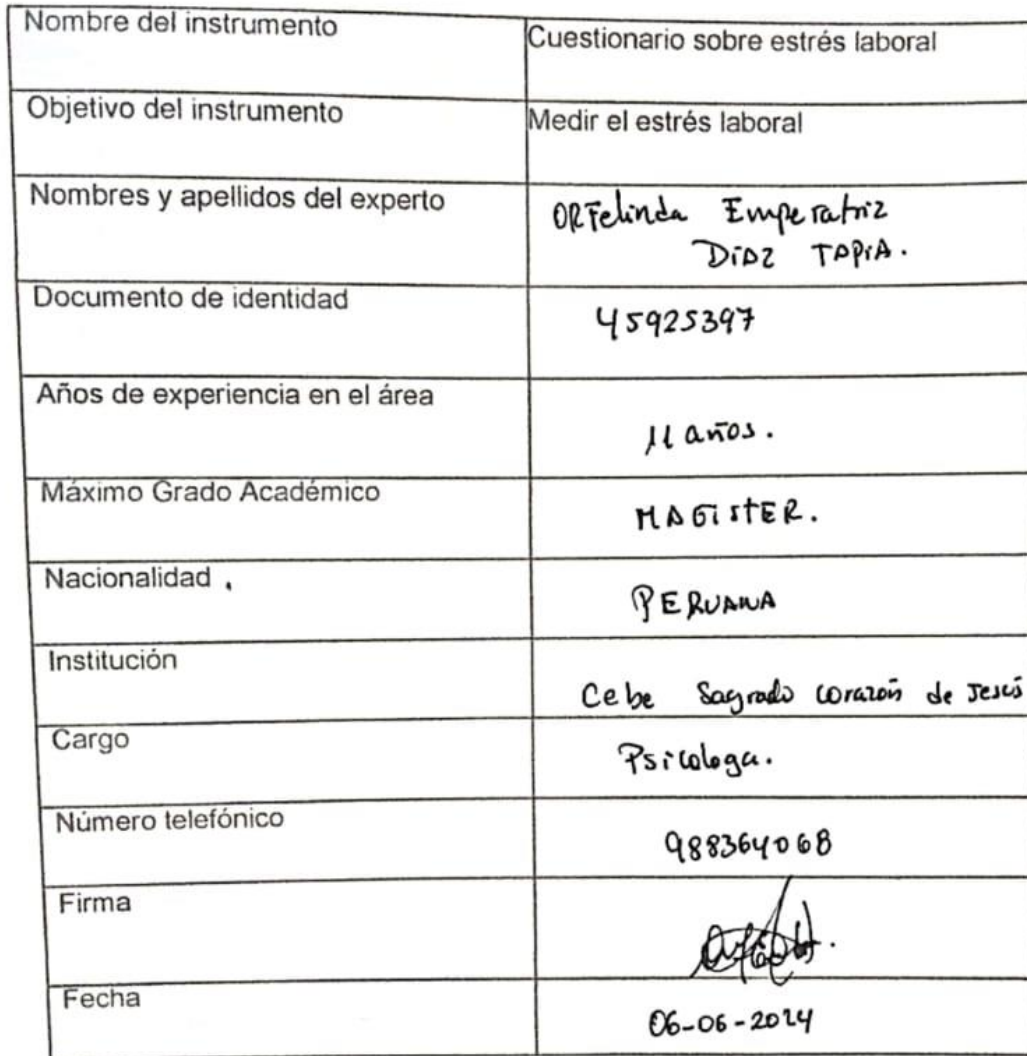 Nombre del instrumento
Cuestionario sobre estrés laboral
Objetivo del instrumento
Medir el estrés laboral
Nombres y apellidos del experto
ORFelinda Emperatriz
DiAZ TAPiA.
Documento de identidad
45925397
Años de experiencia en el área
11 años.
Máximo Grado Académico
MAGistER.
Nacionalidad
PERUANA
Institución
Cebe Sagrado corazón de Jesús
Cargo
Psicologa.
Número telefónico
988364068
Firma
Fecha
06-06-2024